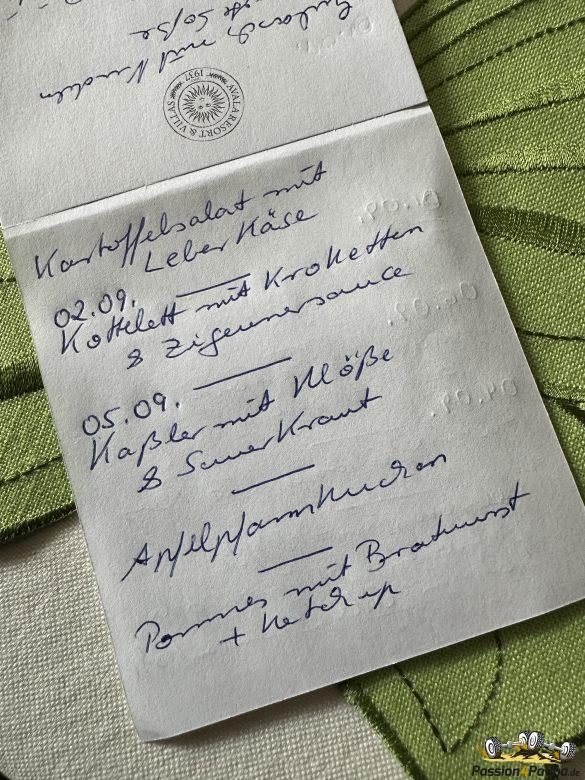 Gulasch mit Nudeln
Soße
AVALA RESORT & VILLAS
1937
Kartoffelsalat mit
Leber Käse
02.09.
Kottelett mit Kroketten
& Zigeunersauce
05.09.
Kaßler mit Klöße
& Sauerkraut
Apfelpfannkuchen
Pommes mit Bratwurst
+ Ketchup